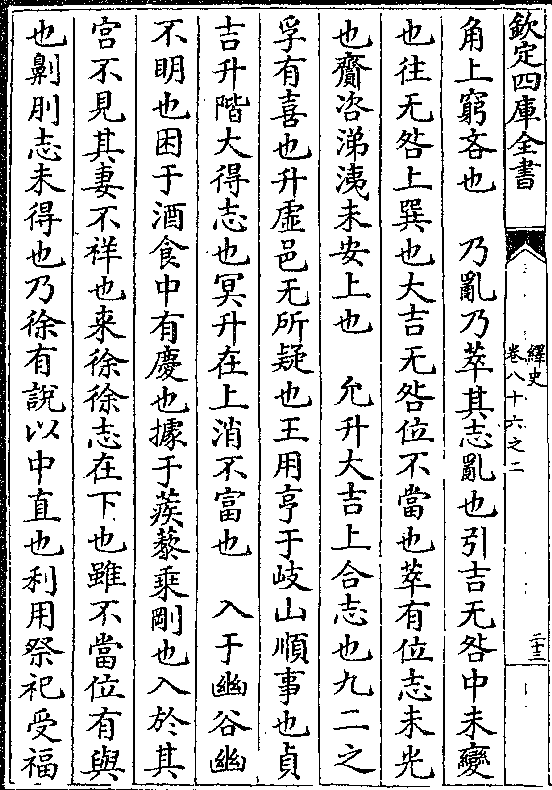 欽定四庫全書
繹史
卷八十六之二
二十三
角上窮吝也　乃亂乃萃其志亂也引吉无咎中未變
也往无咎上巽也大吉无咎位不當也萃有位志未光
也齎咨涕洟未安上也　允升大吉上合志也九二之
孚有喜也升虛邑无所疑也王用亨于岐山順事也貞
吉升階大得志也冥升在上消不富也　入于幽谷幽
不明也困于酒食中有慶也據于蒺藜乘剛也入於其
宮不見其妻不祥也來徐徐志在下也雖不當位有與
也劓刖志未得也乃徐有說以中直也利用祭祀受福